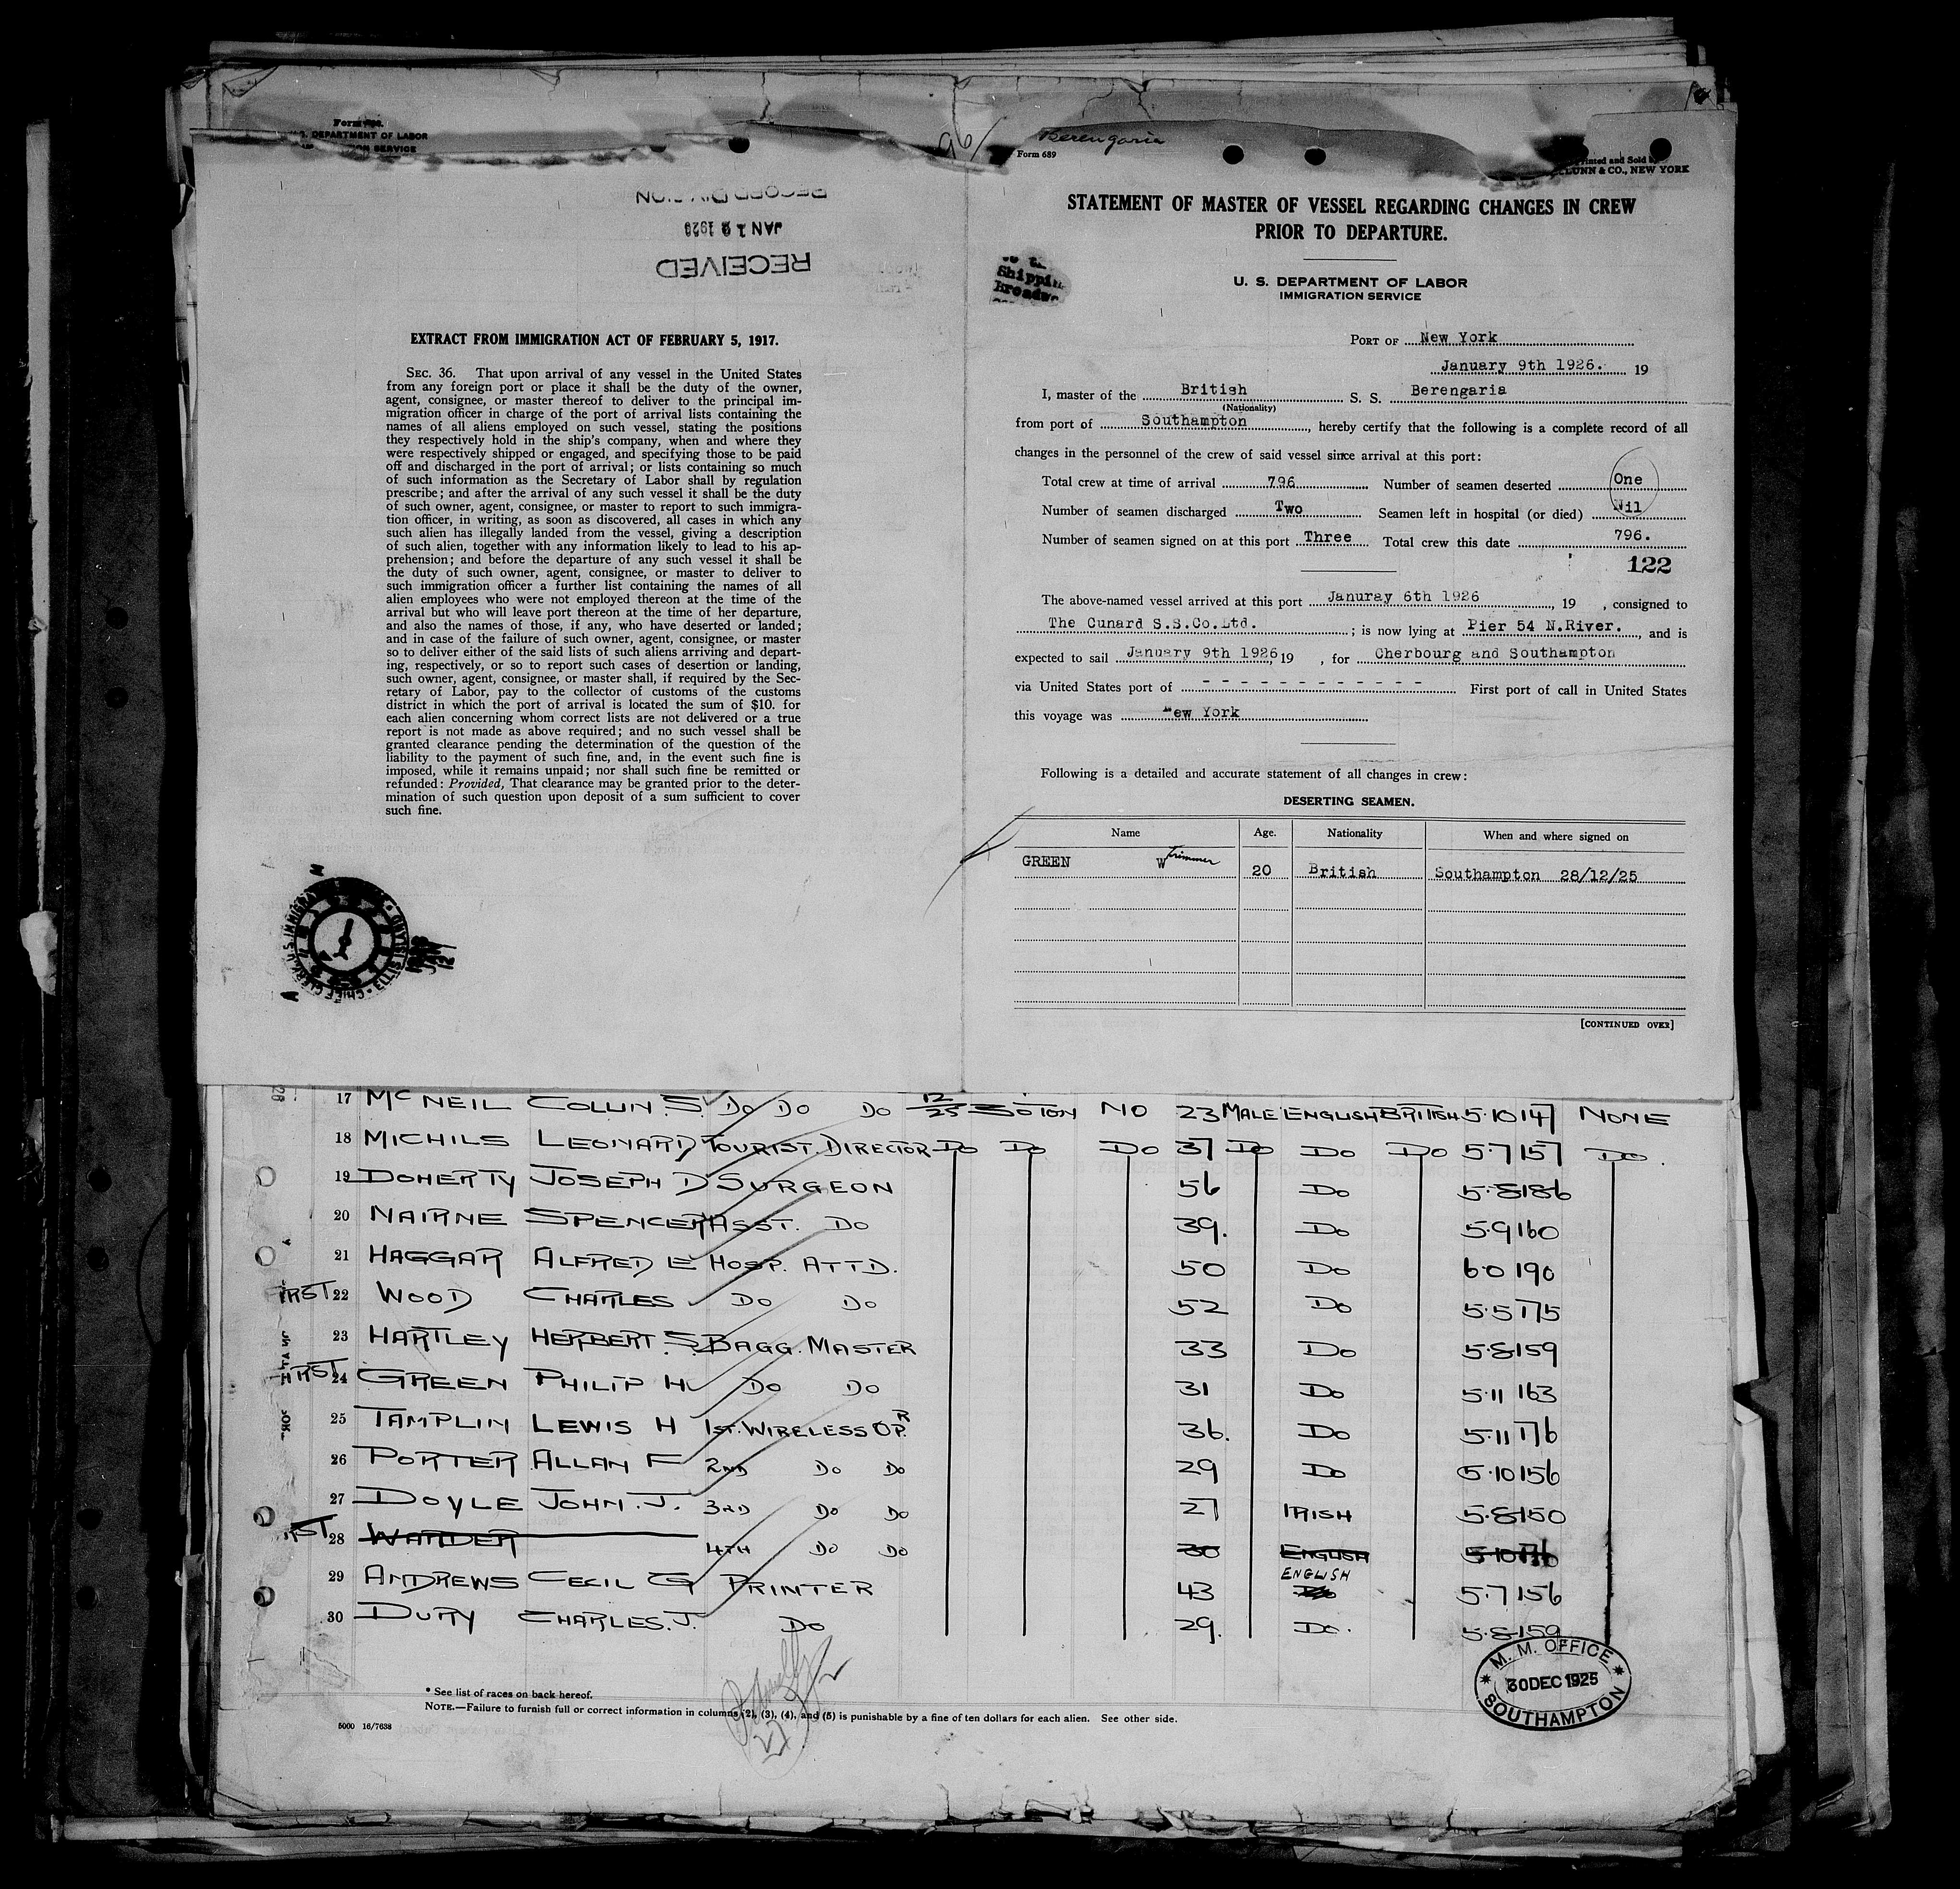 DEPARTMENT OF LABOR
SERVICE
RECORD DIVISION
JAN 1 1926
RECEIVED
EXTRACT FROM IMMIGRATION ACT OF FEBRUARY 5, 1917.
SEC. 36. That upon arrival of any vessel in the United States
from any foreign port or place it shall be the duty of the owner,
agent, consignee, or master thereof to deliver to the principal im-
migration officer in charge of the port of arrival lists containing the
names of all aliens employed on such vessel, stating the positions
they respectively hold in the ship's company, when and where they
were respectively shipped or engaged, and specifying those to be paid
off and discharged in the port of arrival; or lists containing so much
of such information as the Secretary of Labor shall by regulation
prescribe; and after the arrival of any such vessel it shall be the duty
of such owner, agent, consignee, or master to report to such immigra-
tion officer, in writing, as soon as discovered, all cases in which any
such alien has illegally landed from the vessel, giving a description
of such alien, together with any information likely to lead to his ap-
prehension; and before the departure of any such vessel it shall be
the duty of such owner, agent, consignee, or master to deliver to
such immigration officer a further list containing the names of all
alien employees who were not employed thereon at the time of the
arrival but who will leave port thereon at the time of her departure,
and also the names of those, if any, who have deserted or landed;
and in case of the failure of such owner, agent, consignee, or master
so to deliver either of the said lists of such aliens arriving and depart-
ing, respectively, or so to report such cases of desertion or landing,
such owner, agent, consignee, or master shall, if required by the Sec-
retary of Labor, pay to the collector of customs of the customs
district in which the port of arrival is located the sum of $10. for
each alien concerning whom correct lists are not delivered or a true
report is not made as above required; and no such vessel shall be
granted clearance pending the determination of the question of the
liability to the payment of such fine, and, in the event such fine is
imposed, while it remains unpaid; nor shall such fine be remitted or
refunded: Provided, That clearance may be granted prior to the deter-
mination of such question upon deposit of a sum sufficient to cover
such fine.
96/
Berengaria
Form 689
Printed and Sold by
LUNN & CO., NEW YORK
STATEMENT OF MASTER OF VESSEL REGARDING CHANGES IN CREW
PRIOR TO DEPARTURE.
U. S. DEPARTMENT OF LABOR
IMMIGRATION SERVICE
PORT OF New York
January 9th 1926. 19
I, master of the British S. S. Berengaria
(Nationality)
from port of Southampton, hereby certify that the following is a complete record of all
changes in the personnel of the crew of said vessel since arrival at this port:
Total crew at time of arrival 796 Number of seamen deserted One
Number of seamen discharged Two Seamen left in hospital (or died) Nil
Number of seamen signed on at this port Three Total crew this date 796.
122
The above-named vessel arrived at this port Januray 6th 1926, 19 , consigned to
The Cunard S.S.Co.Ltd. ; is now lying at Pier 54 N.River., and is
expected to sail January 9th 1926, 19 , for Cherbourg and Southampton
via United States port of - - - - - - - - - - - - First port of call in United States
this voyage was New York
Following is a detailed and accurate statement of all changes in crew:
DESERTING SEAMEN.
Name Age. Nationality When and where signed on
GREEN W Trimmer 20 British Southampton 28/12/25
[CONTINUED OVER]
17 McNEIL COLLIN. S. DO DO DO 12/25 SOTON NO 23 MALE ENGLISH BRITISH 5.10 147 NONE
18 MICHILS LEONARD TOURIST. DIRECTOR DO DO DO 37 DO DO DO 5.7 157 DO.
19 DOHERTY JOSEPH D SURGEON 56 DO 5.8 186
20 NAIRNE SPENCER ASST. DO 39. DO 5.9 160
21 HAGGAR ALFRED E HOSP. ATTD. 50 DO 6.0 190
22 WOOD CHARLES DO DO 52 DO 5.5 175
23 HARTLEY HERBERT. S. BAGG. MASTER 33 DO 5.8 159
24 GREEN PHILIP H DO DO 31 DO 5.11 163
25 TAMPLIN LEWIS H 1ST. WIRELESS OPR. 36. DO 5.11 176
26 PORTER ALLAN F 2ND DO DO 29 DO 5.10 156
27 DOYLE JOHN. J. 3RD DO DO 27 IRISH 5.8 150
28 WARDER 4TH DO DO 30 ENGLISH
29 ANDREWS CECIL G PRINTER 43 ENGLISH 5.7 156
30 DURY CHARLES. J. DO 29. DO. 5.8 159
M. M. OFFICE
30 DEC 1925
SOUTHAMPTON
* See list of races on back hereof.
NOTE.—Failure to furnish full or correct information in columns (2), (3), (4), and (5) is punishable by a fine of ten dollars for each alien. See other side.
5000 16/7638